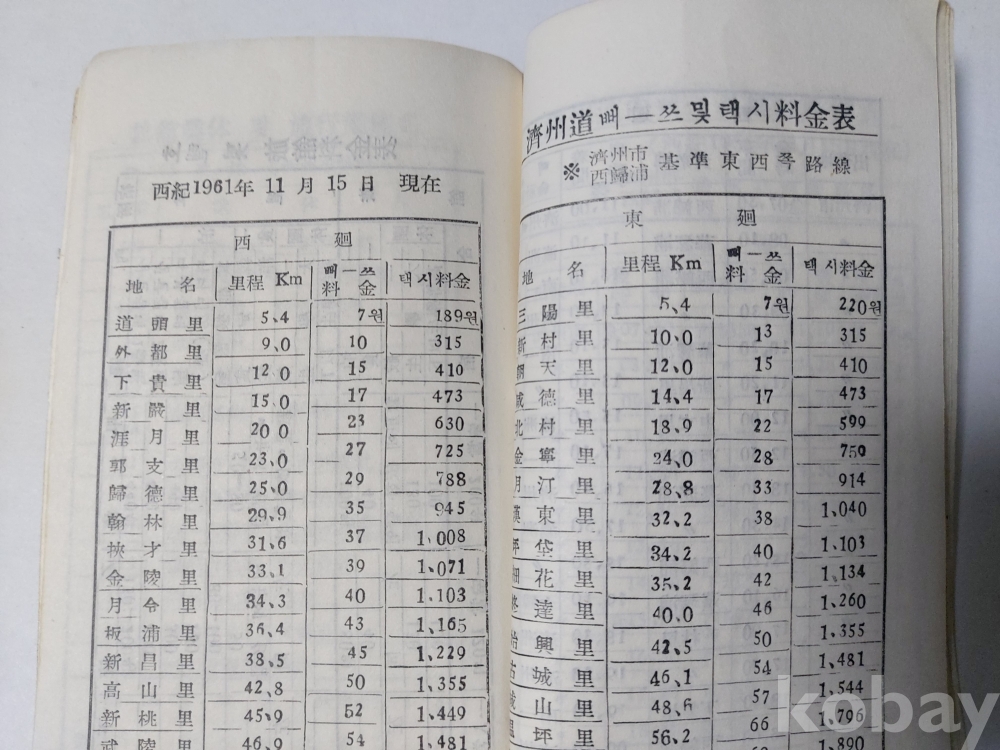 西紀1961年 11月 15日 現在
西 廻
地 名 里程 Km 뻐—쓰料金 택시料金
道頭里 5.4 7원 189원
外都里 9.0 10 315
下貴里 12.0 15 410
新嚴里 15.0 17 473
涯月里 20.0 23 630
郭支里 23.0 27 725
歸德里 25.0 29 788
翰林里 29.9 35 945
挾才里 31.6 37 1,008
金陵里 33.1 39 1,071
月令里 34.3 40 1,103
板浦里 36.4 43 1,165
新昌里 38.5 45 1,229
高山里 42.8 50 1,355
新桃里 45.9 52 1,449
武陵里 46.9 54 1,481
濟州道뻐—쓰및택시料金表
※ 濟州市 西歸浦 基準東西쪽路線
東 廻
地 名 里程 Km 뻐—쓰料金 택시料金
三陽里 5.4 7원 220원
新村里 10.0 13 315
朝天里 12.0 15 410
咸德里 14.4 17 473
北村里 18.9 22 599
金寧里 24.0 28 759
月汀里 28.8 33 914
漢東里 32.2 38 1,040
坪岱里 34.2 40 1,103
細花里 35.2 42 1,134
終達里 40.0 46 1,260
始興里 42.5 50 1,355
古城里 46.1 54 1,481
城山里 48.6 57 1,544
溫坪里 56.2 66 1,796
1,890
kobay